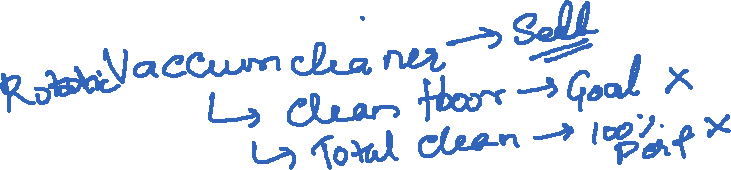 Robotic Vaccum cleaner → Sell
↳ clean floor → Goal ×
↳ Total clean → 100% Perf ×